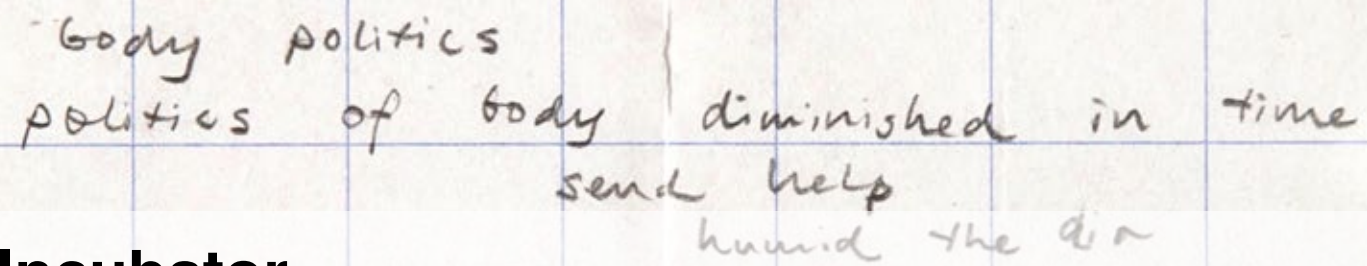 body politics
politics of body diminished in time
send help
humid the air
Incubator